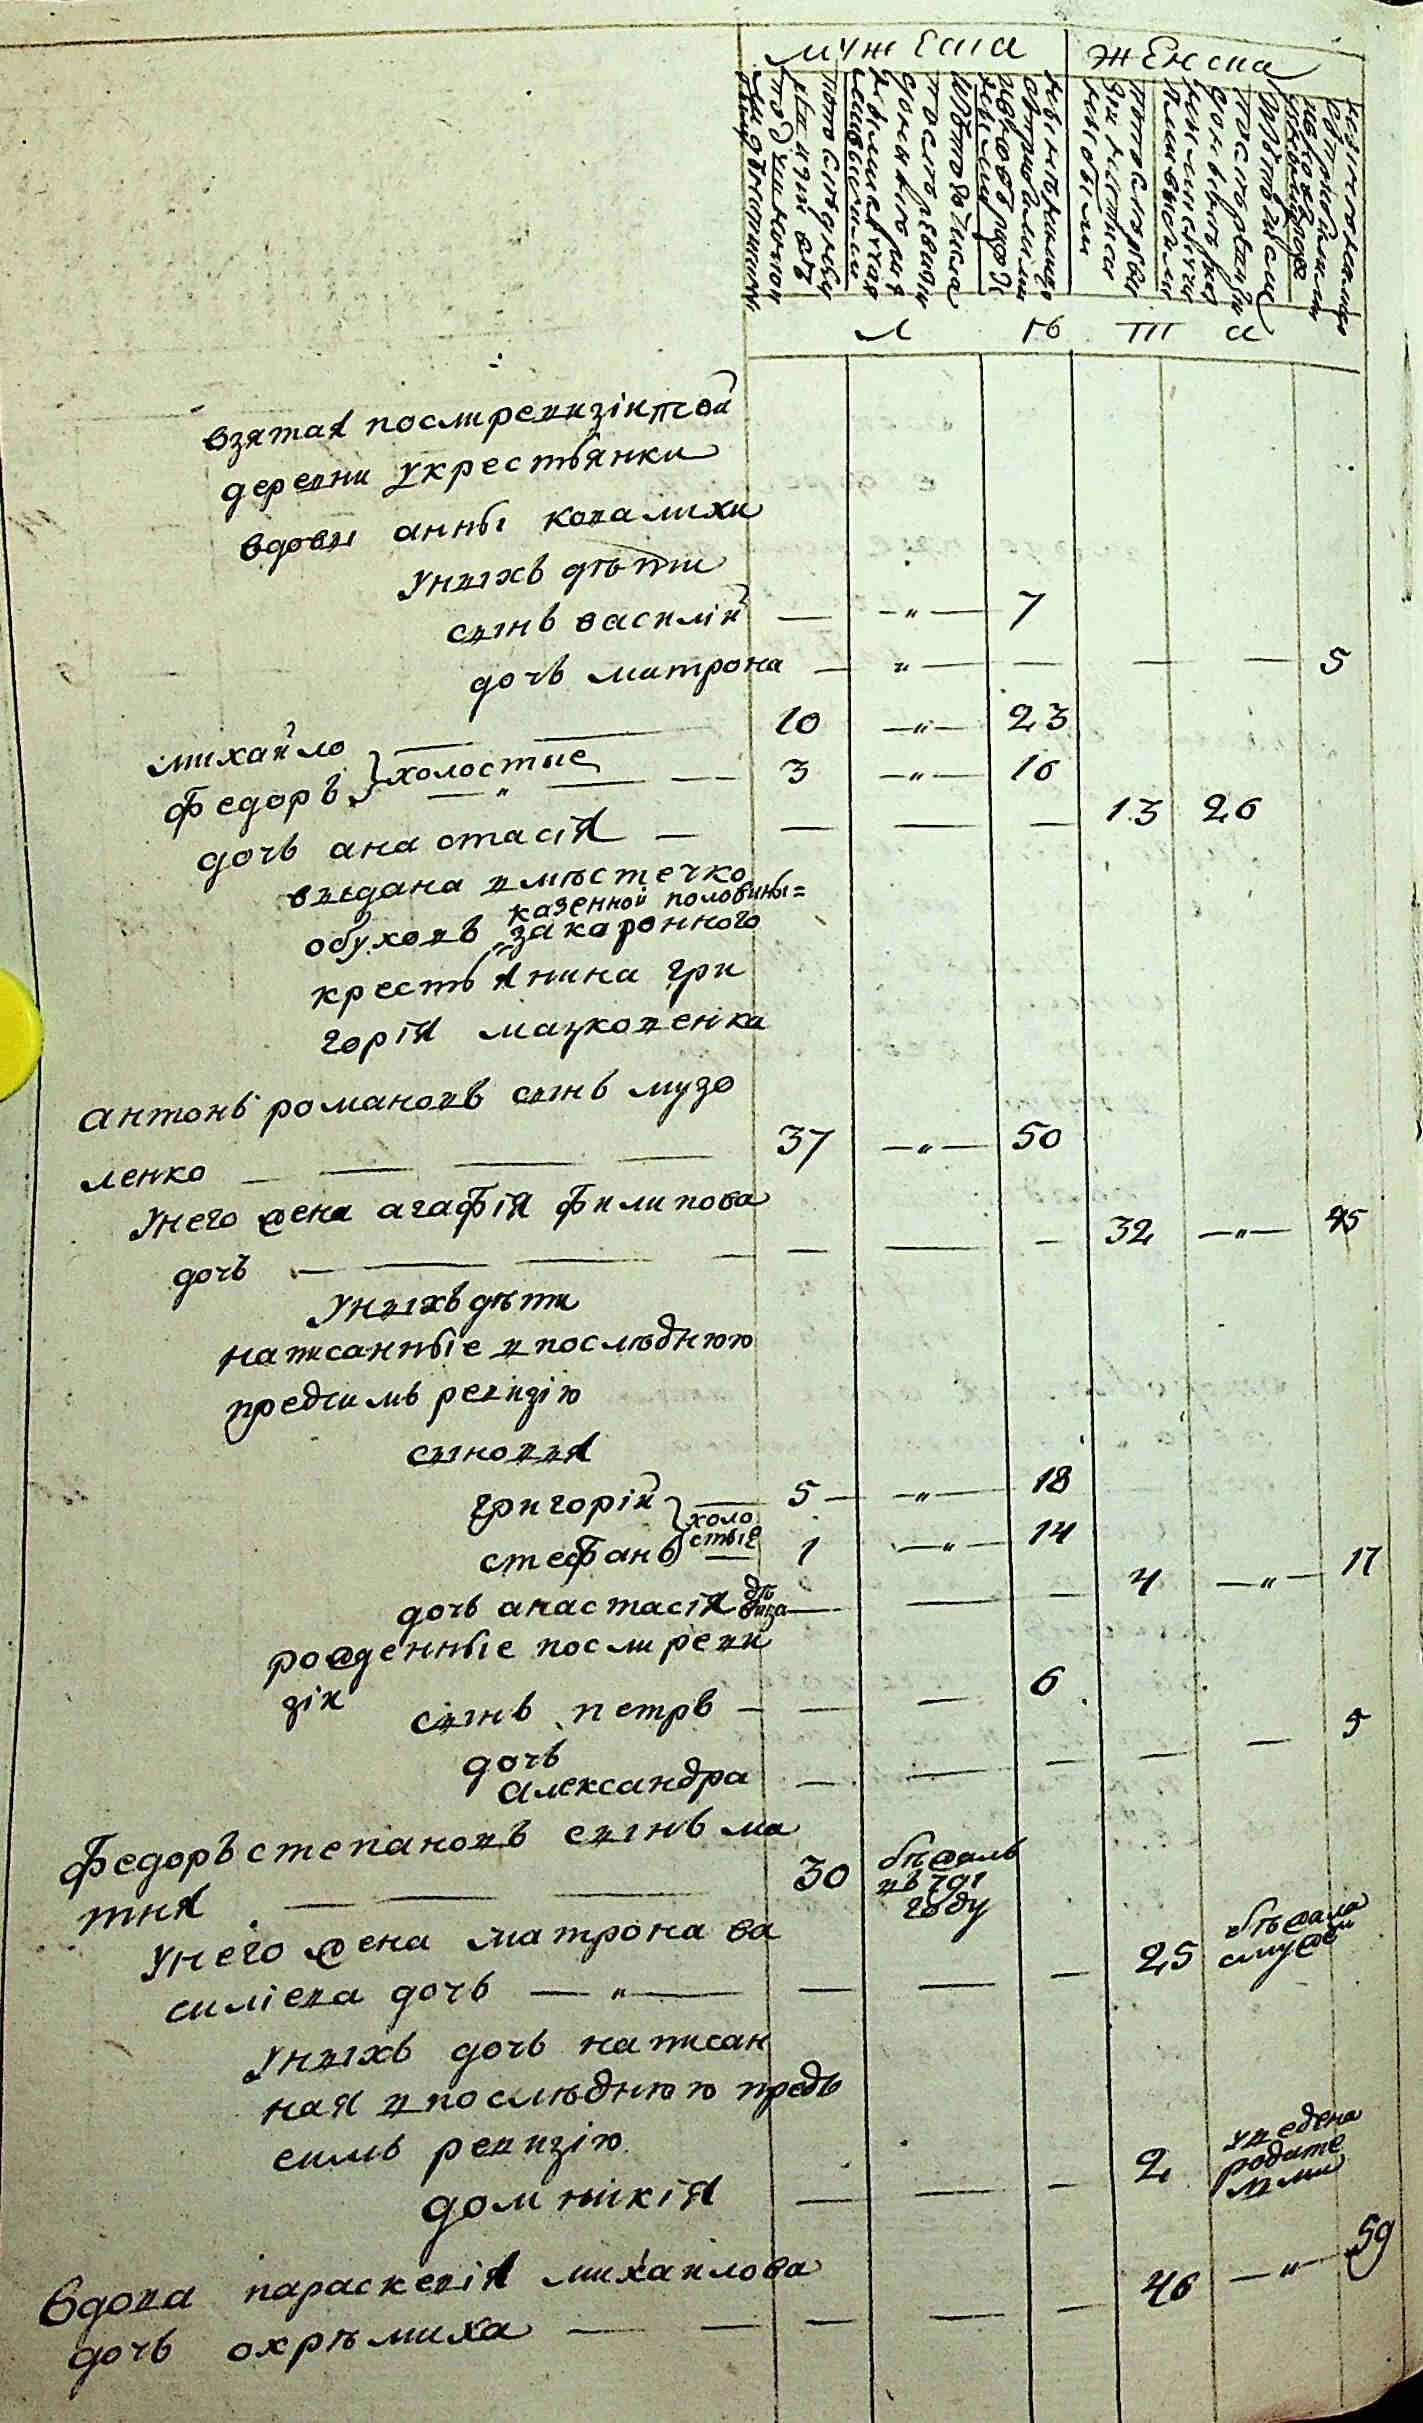 мужеска
женска
лѣта
взятая послиревизіи той
деревни укрестьянки
вдовы анны ковалихи
унихъ дѣти
сынъ василій — „ — 7
дочь митрона — „ — — — — 5
михайло — — 10 — „ — 23
федоръ } холостые — „ — — 3 — „ — 16
дочь анастасія — — — — 13 26
выдана вмѣстечко
казенной половины=
обуховъ закоронного
крестьянина гри
горія мацковенка
антонъ романовъ сынъ музо
ленко — — — — 37 — „ — 50
Унего жена агафія филипова
дочь — — — — — — — 32 — „ — 45
Унихъ дѣти
написанные впослѣднюю
предсимъ ревизію
сыновья
григорій — 5 — „ — 18
холо
стефанъ стые — 1 — „ — 14
дочь анастасія дѣвица — — — 4 — „ — 17
рожденные посли реви
зіи
сынъ петръ — — — 6
дочь
Александра — — — — — 5
Федоръ степановъ сынъ ма
тня — — — 30 бѣжалъ
въ 791
году
Унего жена матрона ва
силіева дочь — „ — — — — 25 бѣжала
смужем
Унихъ дочь написан
ная впослѣднюю предъ
симъ ревизію
домникія — — — 2 уведена
родите
лями
Вдова параскевія михаилова
дочь охрѣмиха — — — — — 46 — „ — 59